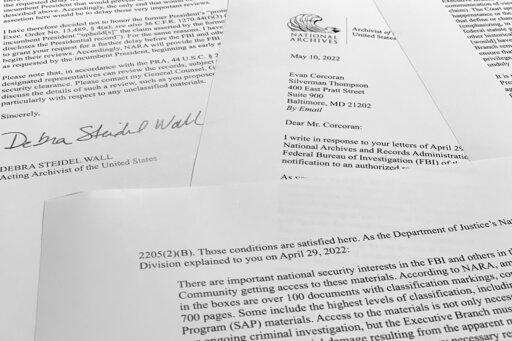 the requested
incumbent President that would
decision. Accordingly, the only end that would
assertion here would be to delay those very
I have therefore decided not to honor the former President's "protective"
Exec. Order No. 13,489, § 4(a); see also 36 C.F.R. 1270.44(f)(3)
incumbent President "uphold[s]" the claim asserted by the former
disclose the Presidential record"). For the same reasons, I have
to grant your request for a further delay before the FBI and others
begin their reviews. Accordingly, NARA will provide the FBI
as requested by the incumbent President, beginning as early as
Please note that, in accordance with the PRA, 44 U.S.C. §
designated representatives can review the records, subject to
security clearance. Please contact my General Counsel,
discuss the details of such a review, such as you proposed
particularly with respect to any unclassified materials.
Sincerely,
Debra Steidel Wall
DEBRA STEIDEL WALL
Acting Archivist of the United States
NATIONAL
ARCHIVES
Archivist of
United States
May 10, 2022
Evan Corcoran
Silverman Thompson
400 East Pratt Street
Suite 900
Baltimore, MD 21202
By Email
Dear Mr. Corcoran:
I write in response to your letters of April 29,
National Archives and Records Administration
Federal Bureau of Investigation (FBI)
notification to an authorized
As
2205(2)(B). Those conditions are satisfied here. As the Department of Justice's
Division explained to you on April 29, 2022:
There are important national security interests in the FBI and others in
Community getting access to these materials. According to NARA,
in the boxes are over 100 documents with classification markings,
700 pages. Some include the highest levels of classification, including
Program (SAP) materials. Access to the materials is not only necessary
ongoing criminal investigation, but the Executive Branch must
damage resulting from the apparent
necessary